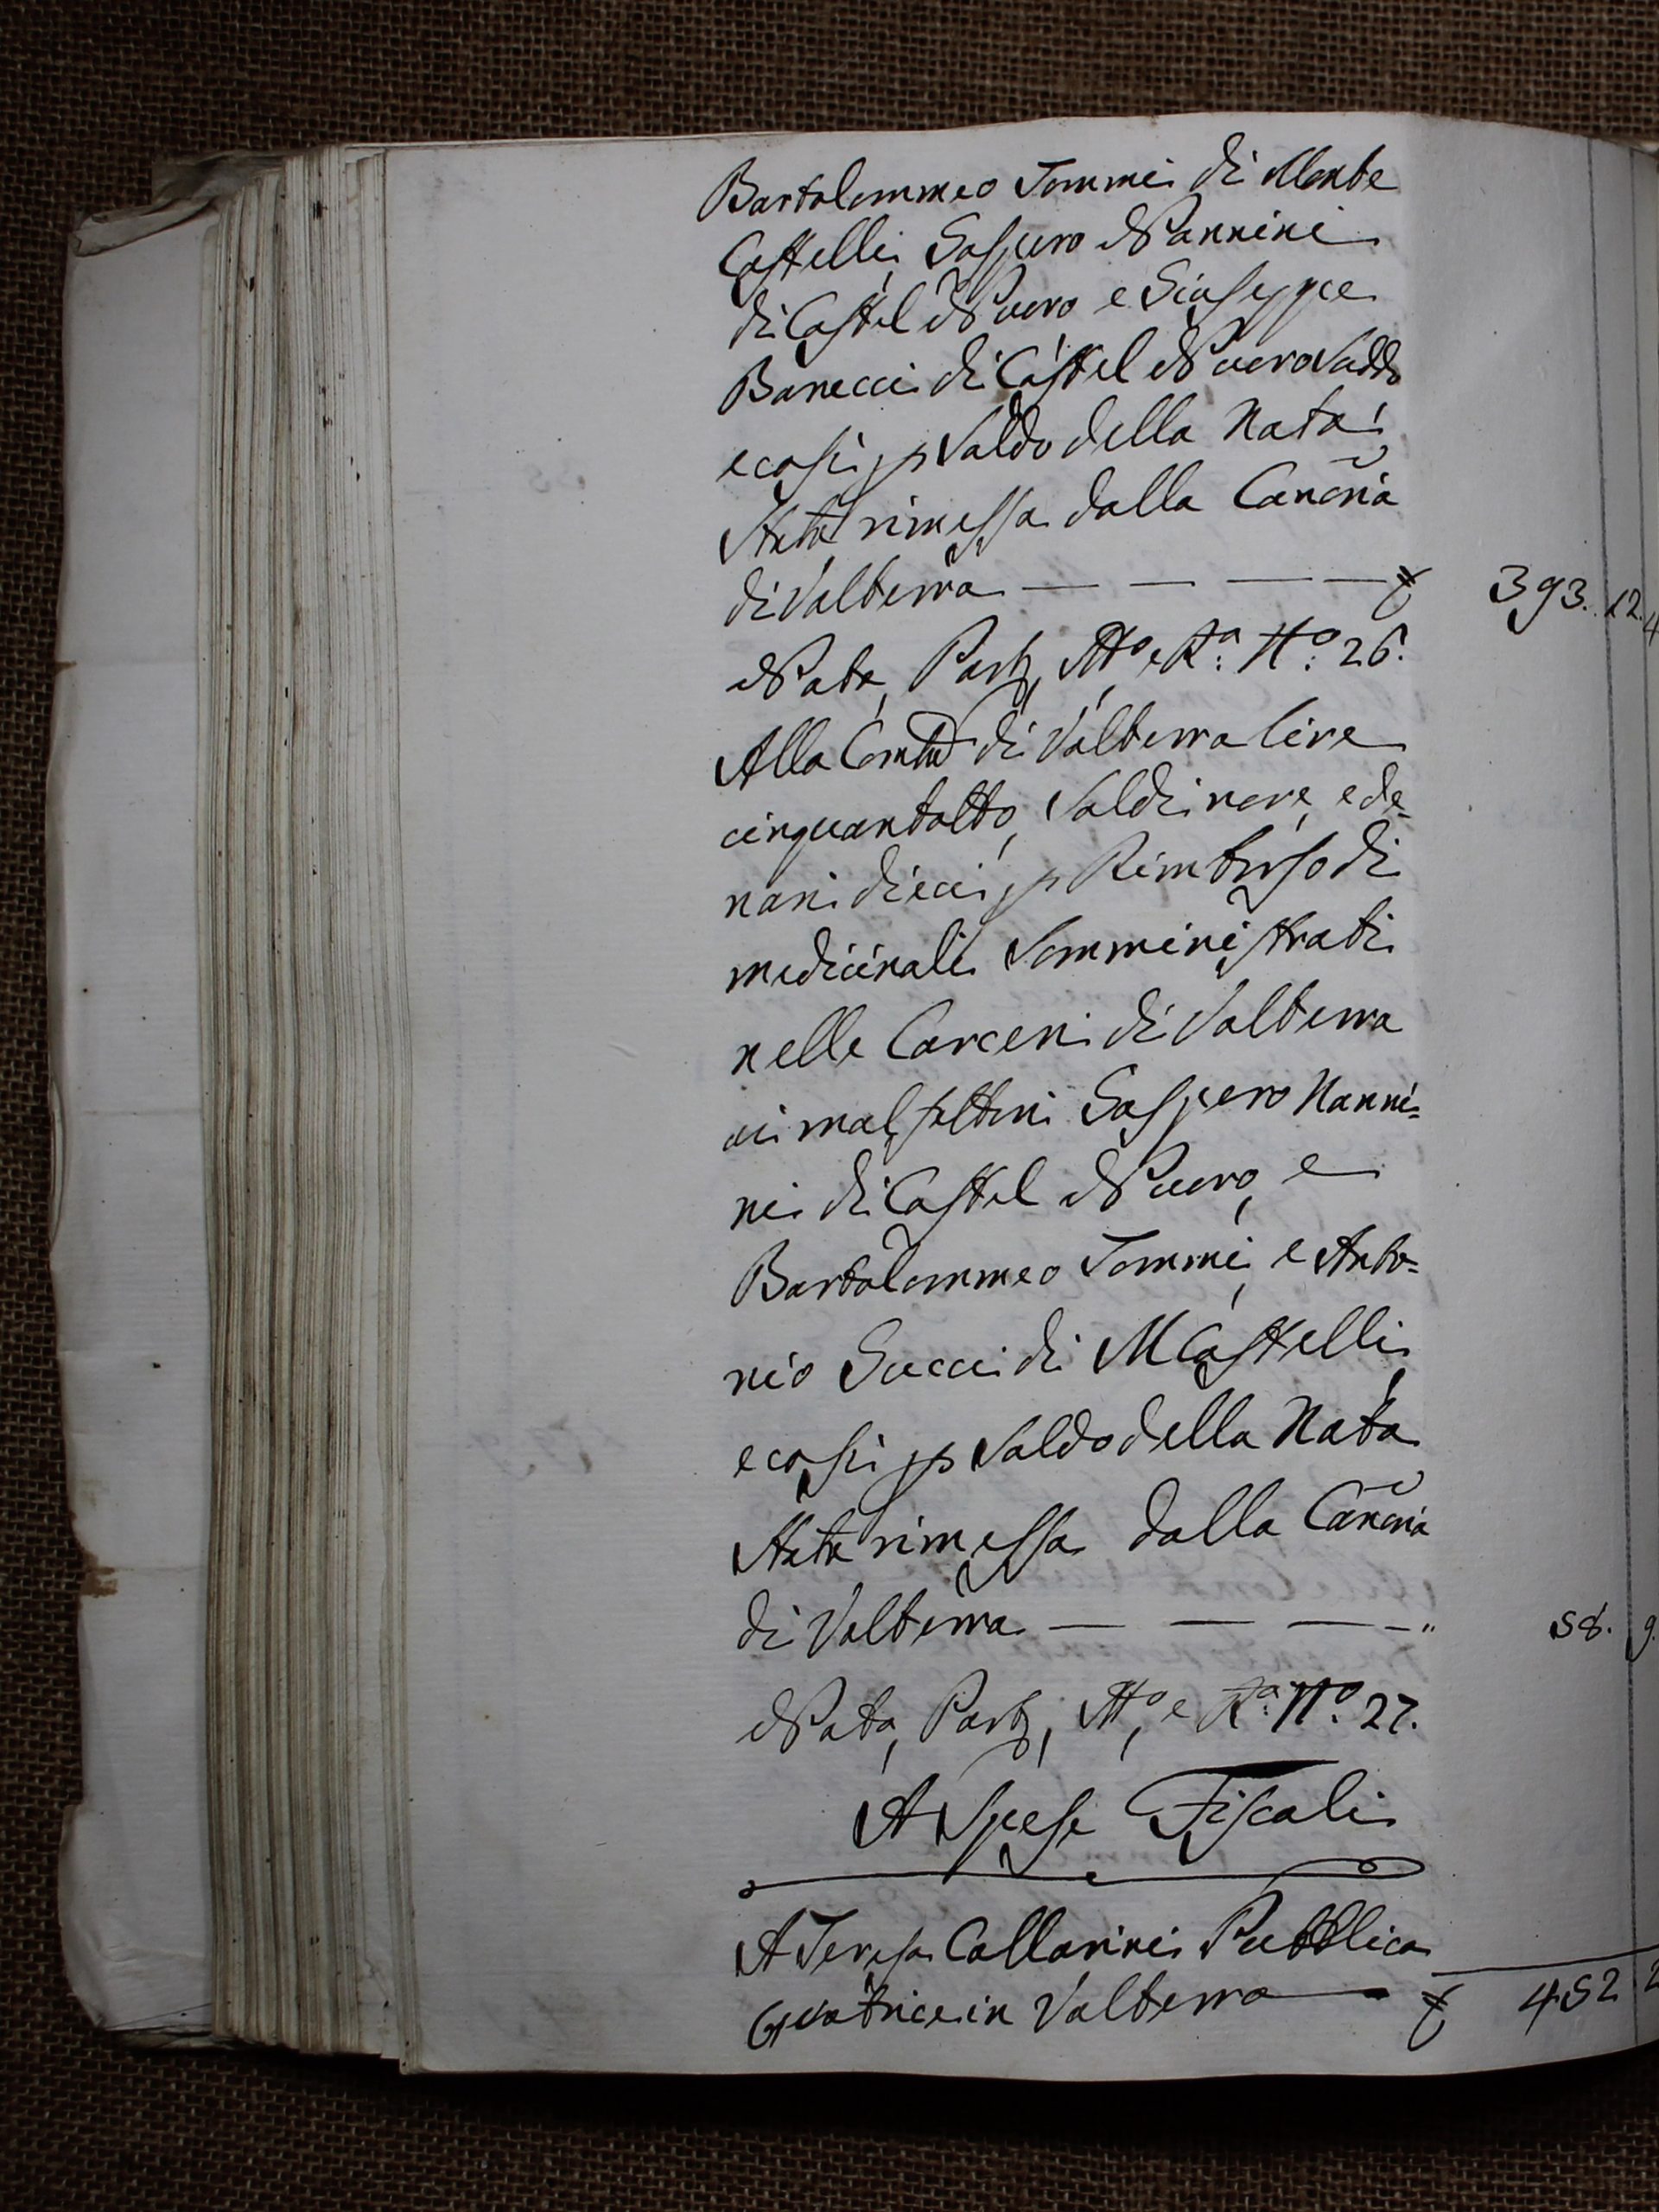 Bartolommeo Tommi di Monte
Castelli, Gaspero Nannini
di Castel Nuovo e Giuseppe
Banecci di Castel Nuovo Sudd.o
e così p Saldo della Nota
Stata rimessa dalla Canc̃ria
di Volterra — — — — £ 393. 12. 4
Nota, Part, Mto, e Ra. No. 26.
Alla Comtà di Volterra lire
cinquantotto, Soldi nove, e de=
nari dieci p Rimborso di
medicinali Somministrati
nelle Carceri di Volterra
ai malfattori Gaspero Nanni=
ni di Castel Nuovo, e
Bartolommeo Tommi, e Anto=
nio Gucci di M Castelli,
e così p Saldo della Nota
Stata rimessa dalla Canc̃ria
di Volterra — — — — " 58. 9.
Nota, Part, Mto, e Ra. No. 27.
A Spese Fiscali
A Teresa Callarini Pubblica
Ostetrice in Volterra — £ 452 2